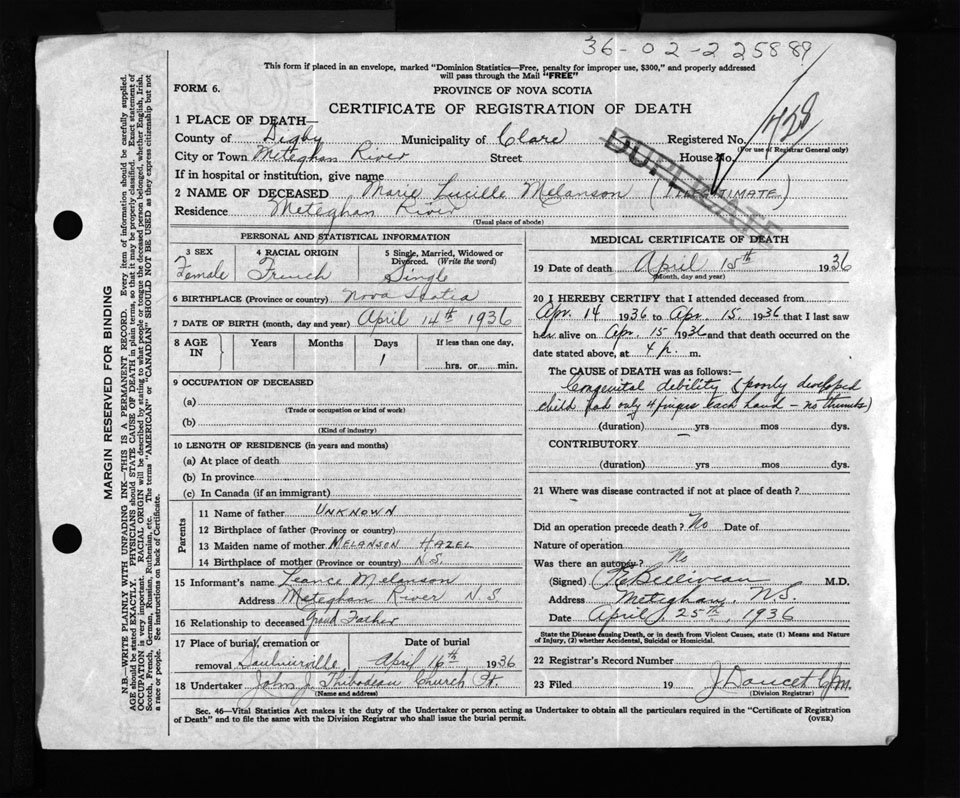 36-02-225889
This form if placed in an envelope, marked "Dominion Statistics—Free, penalty for improper use, $300," and properly addressed
will pass through the Mail "FREE"
FORM 6.
PROVINCE OF NOVA SCOTIA
CERTIFICATE OF REGISTRATION OF DEATH
1 PLACE OF DEATH—
County of Digby Municipality of Clare Registered No. 728
(For use of Registrar General only)
City or Town Meteghan River Street House No.
DUPLICATE
If in hospital or institution, give name
2 NAME OF DECEASED Marie Lucille Melanson (ILLEGITIMATE)
Residence Meteghan River
(Usual place of abode)
PERSONAL AND STATISTICAL INFORMATION
3 SEX Female
4 RACIAL ORIGIN French
5 Single, Married, Widowed or Divorced. (Write the word) Single
6 BIRTHPLACE (Province or country) Nova Scotia
7 DATE OF BIRTH (month, day and year) April 14th 1936
8 AGE IN Years Months Days 1 If less than one day, hrs. or min.
9 OCCUPATION OF DECEASED
(a)
(Trade or occupation or kind of work)
(b)
(Kind of industry)
10 LENGTH OF RESIDENCE (in years and months)
(a) At place of death
(b) In province
(c) In Canada (if an immigrant)
Parents
11 Name of father UNKNOWN
12 Birthplace of father (Province or country)
13 Maiden name of mother MELANSON HAZEL
14 Birthplace of mother (Province or country) N.S.
15 Informant's name Leance Melanson
Address Meteghan River N.S.
16 Relationship to deceased Grand Father
17 Place of burial, cremation or removal Saulnierville Date of burial April 16th 1936
18 Undertaker John J. Thibodeau Church Pt.
(Name and address)
MEDICAL CERTIFICATE OF DEATH
19 Date of death April 15th 1936
(Month, day and year)
20 I HEREBY CERTIFY that I attended deceased from
Apr. 14 1936 to Apr. 15 1936 that I last saw
her alive on Apr. 15 1936 and that death occurred on the
date stated above, at 4 p. m.
The CAUSE of DEATH was as follows:—
Congenital debility (poorly developed
child had only 4 fingers each hand - no thumbs)
(duration) yrs mos dys.
CONTRIBUTORY
(duration) yrs mos dys.
21 Where was disease contracted if not at place of death?
Did an operation precede death? No Date of
Nature of operation
Was there an autopsy? No
(Signed) Belliveau M.D.
Address Meteghan, N.S.
Date April 25th, 1936
State the Disease causing Death, or in death from Violent Causes, state (1) Means and Nature
of Injury, (2) whether Accidental, Suicidal or Homicidal.
22 Registrar's Record Number
23 Filed 19 J Doucet
(Division Registrar)
Sec. 46—Vital Statistics Act makes it the duty of the Undertaker or person acting as Undertaker to obtain all the particulars required in the "Certificate of Registration
of Death" and to file the same with the Division Registrar who shall issue the burial permit. (OVER)
MARGIN RESERVED FOR BINDING
N.B.—WRITE PLAINLY WITH UNFADING INK—THIS IS A PERMANENT RECORD. Every item of information should be carefully supplied.
AGE should be stated EXACTLY. PHYSICIANS should STATE CAUSE OF DEATH in plain terms, so that it may be properly classified. Exact statement of
OCCUPATION is very important. RACIAL ORIGIN will be described by stating to what people or tongue the deceased person belonged, whether English, Irish,
Scotch, French, German, Russian, Ruthenian, etc. The terms "AMERICAN" or "CANADIAN" SHOULD NOT BE USED as they express citizenship but not
a race or people. See instructions on back of Certificate.